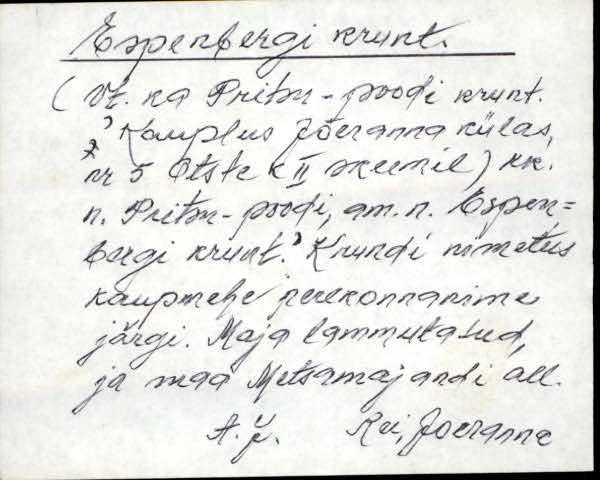 Espenbergi krunt.
(Vt. ka Pritsu-poodi krunt.
Kauplus Jõeranna külas,
nr 5 Otste k II skeemil) kk.
n. Pritsu-poodi, am. n. Espen=
bergi krunt. Krundi nimetus
kaupmehe perekonnanime
järgi. Maja lammutatud,
ja maa Metsamajandi all.
A. Kei, Jõeranna